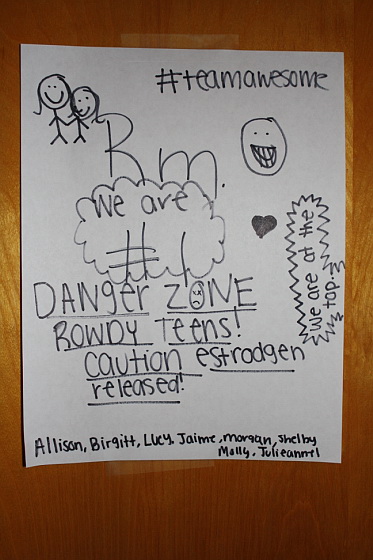 #teamawesome
Rm.
We are
#1
DANger ZONE
ROWDY Teens!
Caution estrodgen
released!
We are at the
top!
Allison, Birgitt, Lucy, Jaime, morgan, Shelby
Molly, Julieannel